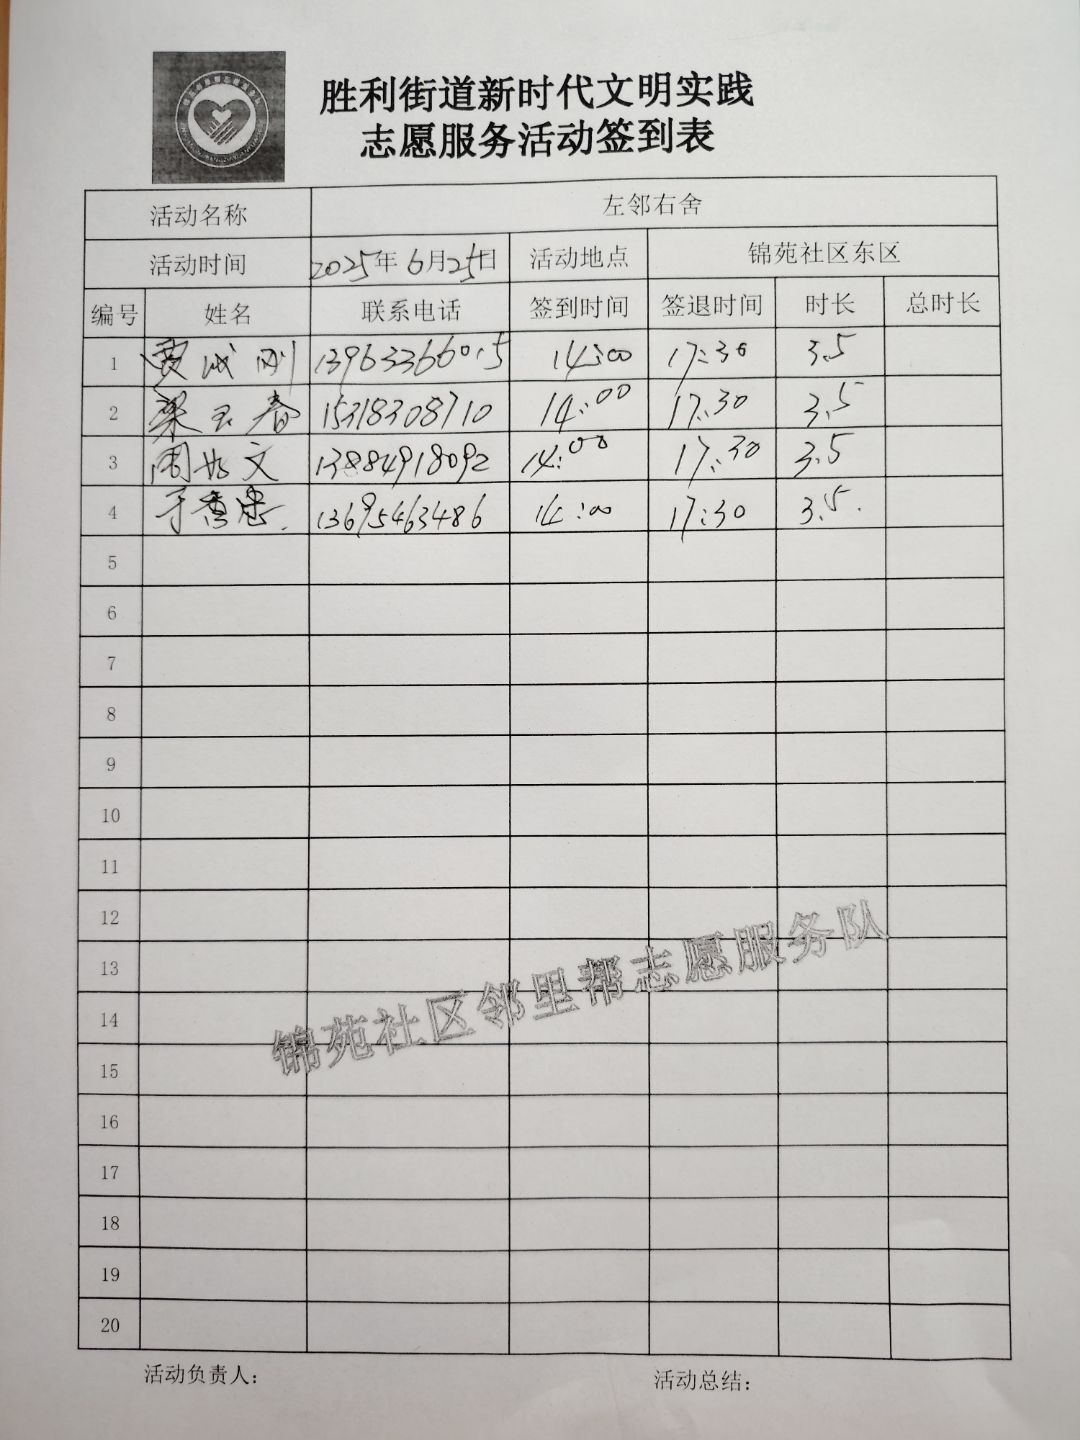 胜利街道新时代文明实践
志愿服务活动签到表
活动名称 左邻右舍
活动时间 2025年6月25日 活动地点 锦苑社区东区
编号 姓名 联系电话 签到时间 签退时间 时长 总时长
1 贾成刚 13963366015 14:00 17:30 3.5
2 梁玉春 15318308710 14:00 17:30 3.5
3 周 文 13884918092 14:00 17:30 3.5
4 于 忠 13695463486 14:00 17:30 3.5
5
6
7
8
9
10
11
12
13
14
15
16
17
18
19
20
锦苑社区邻里帮志愿服务队
活动负责人： 活动总结：